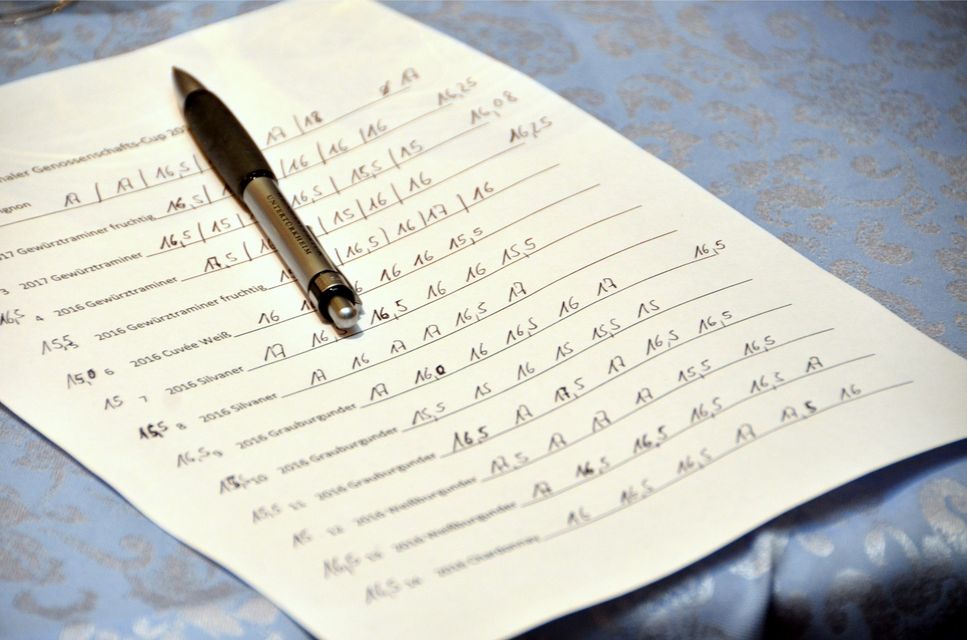 Genossenschafts-Cup
17 | 17 | 16,5 | 17 | 18 17
Gewürztraminer fruchtig 16,5 | 16 | 16 | 16 16,25
3 2017 Gewürztraminer 16,5 | 15 | 16,5 | 15,5 | 15 16,08
16,5 4 2016 Gewürztraminer 17,5 | 15 | 16 | 16 16,25
15,5 5 2016 Gewürztraminer fruchtig 16,5 | 16 | 17 | 16
15,0 6 2016 Cuvée Weiß 16 16 16 15,5
15 7 2016 Silvaner 17 16,5 16 16 15,5
8 2016 Silvaner 17 16 17 17 16,5 17
16,5 9 2016 Grauburgunder 17 16,0 16 16,5 16 17 16,5
10 2016 Grauburgunder 15,5 15 16 15 15,5 15
15,5 11 2016 Grauburgunder 16,5 17 17,5 17 16,5 16,5
15 12 2016 Weißburgunder 17,5 17 17 17 15,5 16,5
16,5 13 2016 Weißburgunder 17 16,5 16,5 16,5 16,5 17
16,5 14 2016 Chardonnay 16 16,5 16,5 17 17,5 16
UNTERTÜRKHEIM